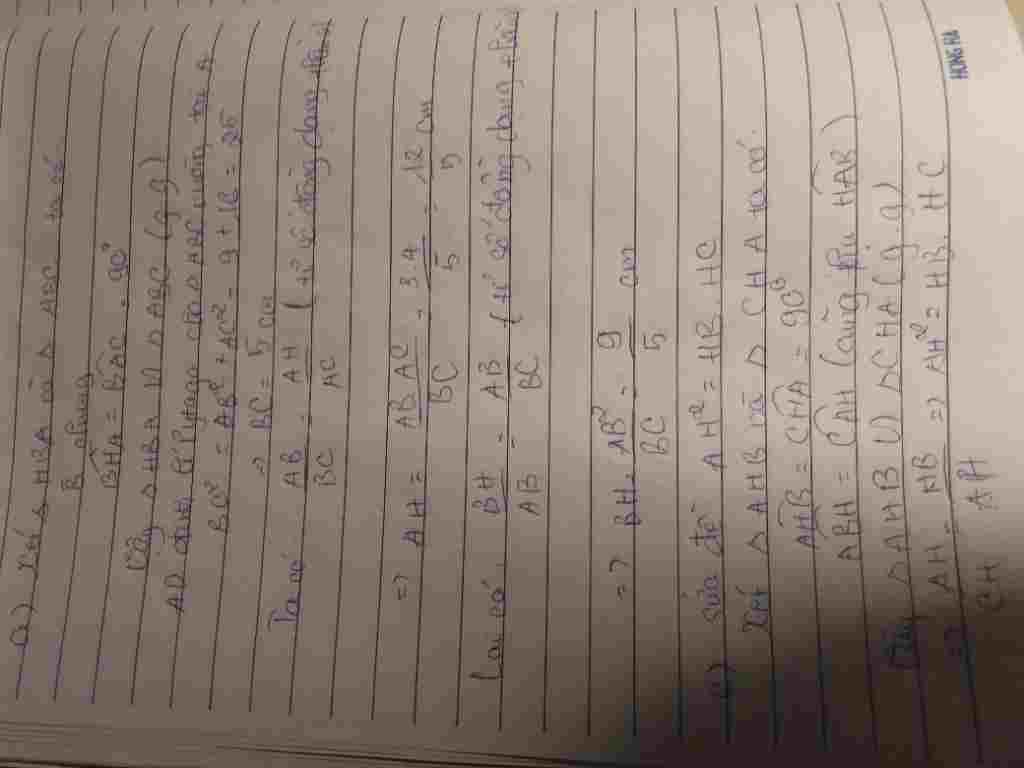 a) Xét Δ HBA và Δ ABC ta có
B chung
BHA = BAC = 90°
Vậy Δ HBA ∽ Δ ABC (g.g)
AD định lí Pytago cho Δ ABC vuông tại A
BC² = AB² + AC² = 9 + 16 = 25
=> BC = 5 cm
Ta có AB/BC = AH/AC (tỉ số đồng dạng
=> AH = AB.AC/BC = 3.4/5 = 12/5 cm
Lại có. BH/AB = AB/BC (tỉ số đồng dạng
=> BH = AB²/BC = 9/5 cm
sửa đề AH² = HB.HC
Xét Δ AHB và Δ CHA ta có.
AHB = CHA = 90°
ABH = CAH (cùng phụ HAB)
Vậy Δ AHB ∽ Δ CHA (g.g)
=> AH/CH = HB/AH => AH² = HB HC
HONG HA